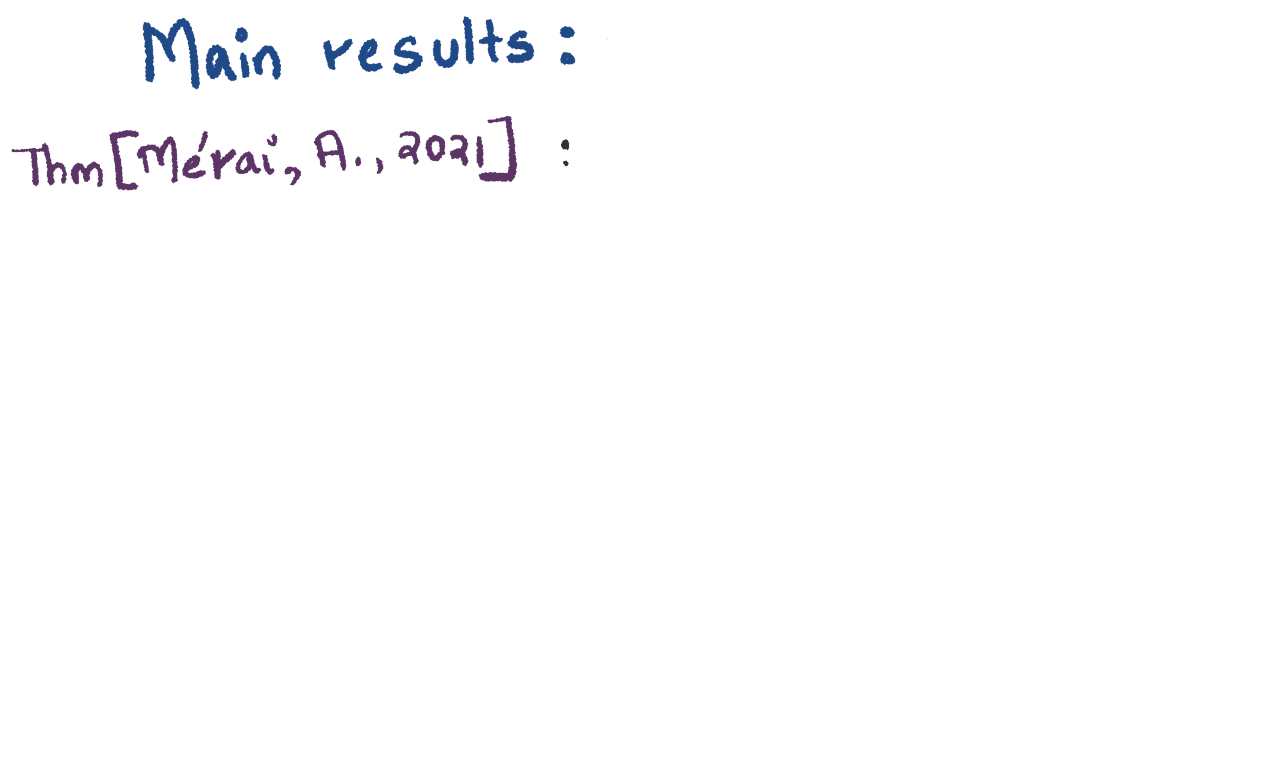 Main results:
Thm [Mérai, A., 2021] :